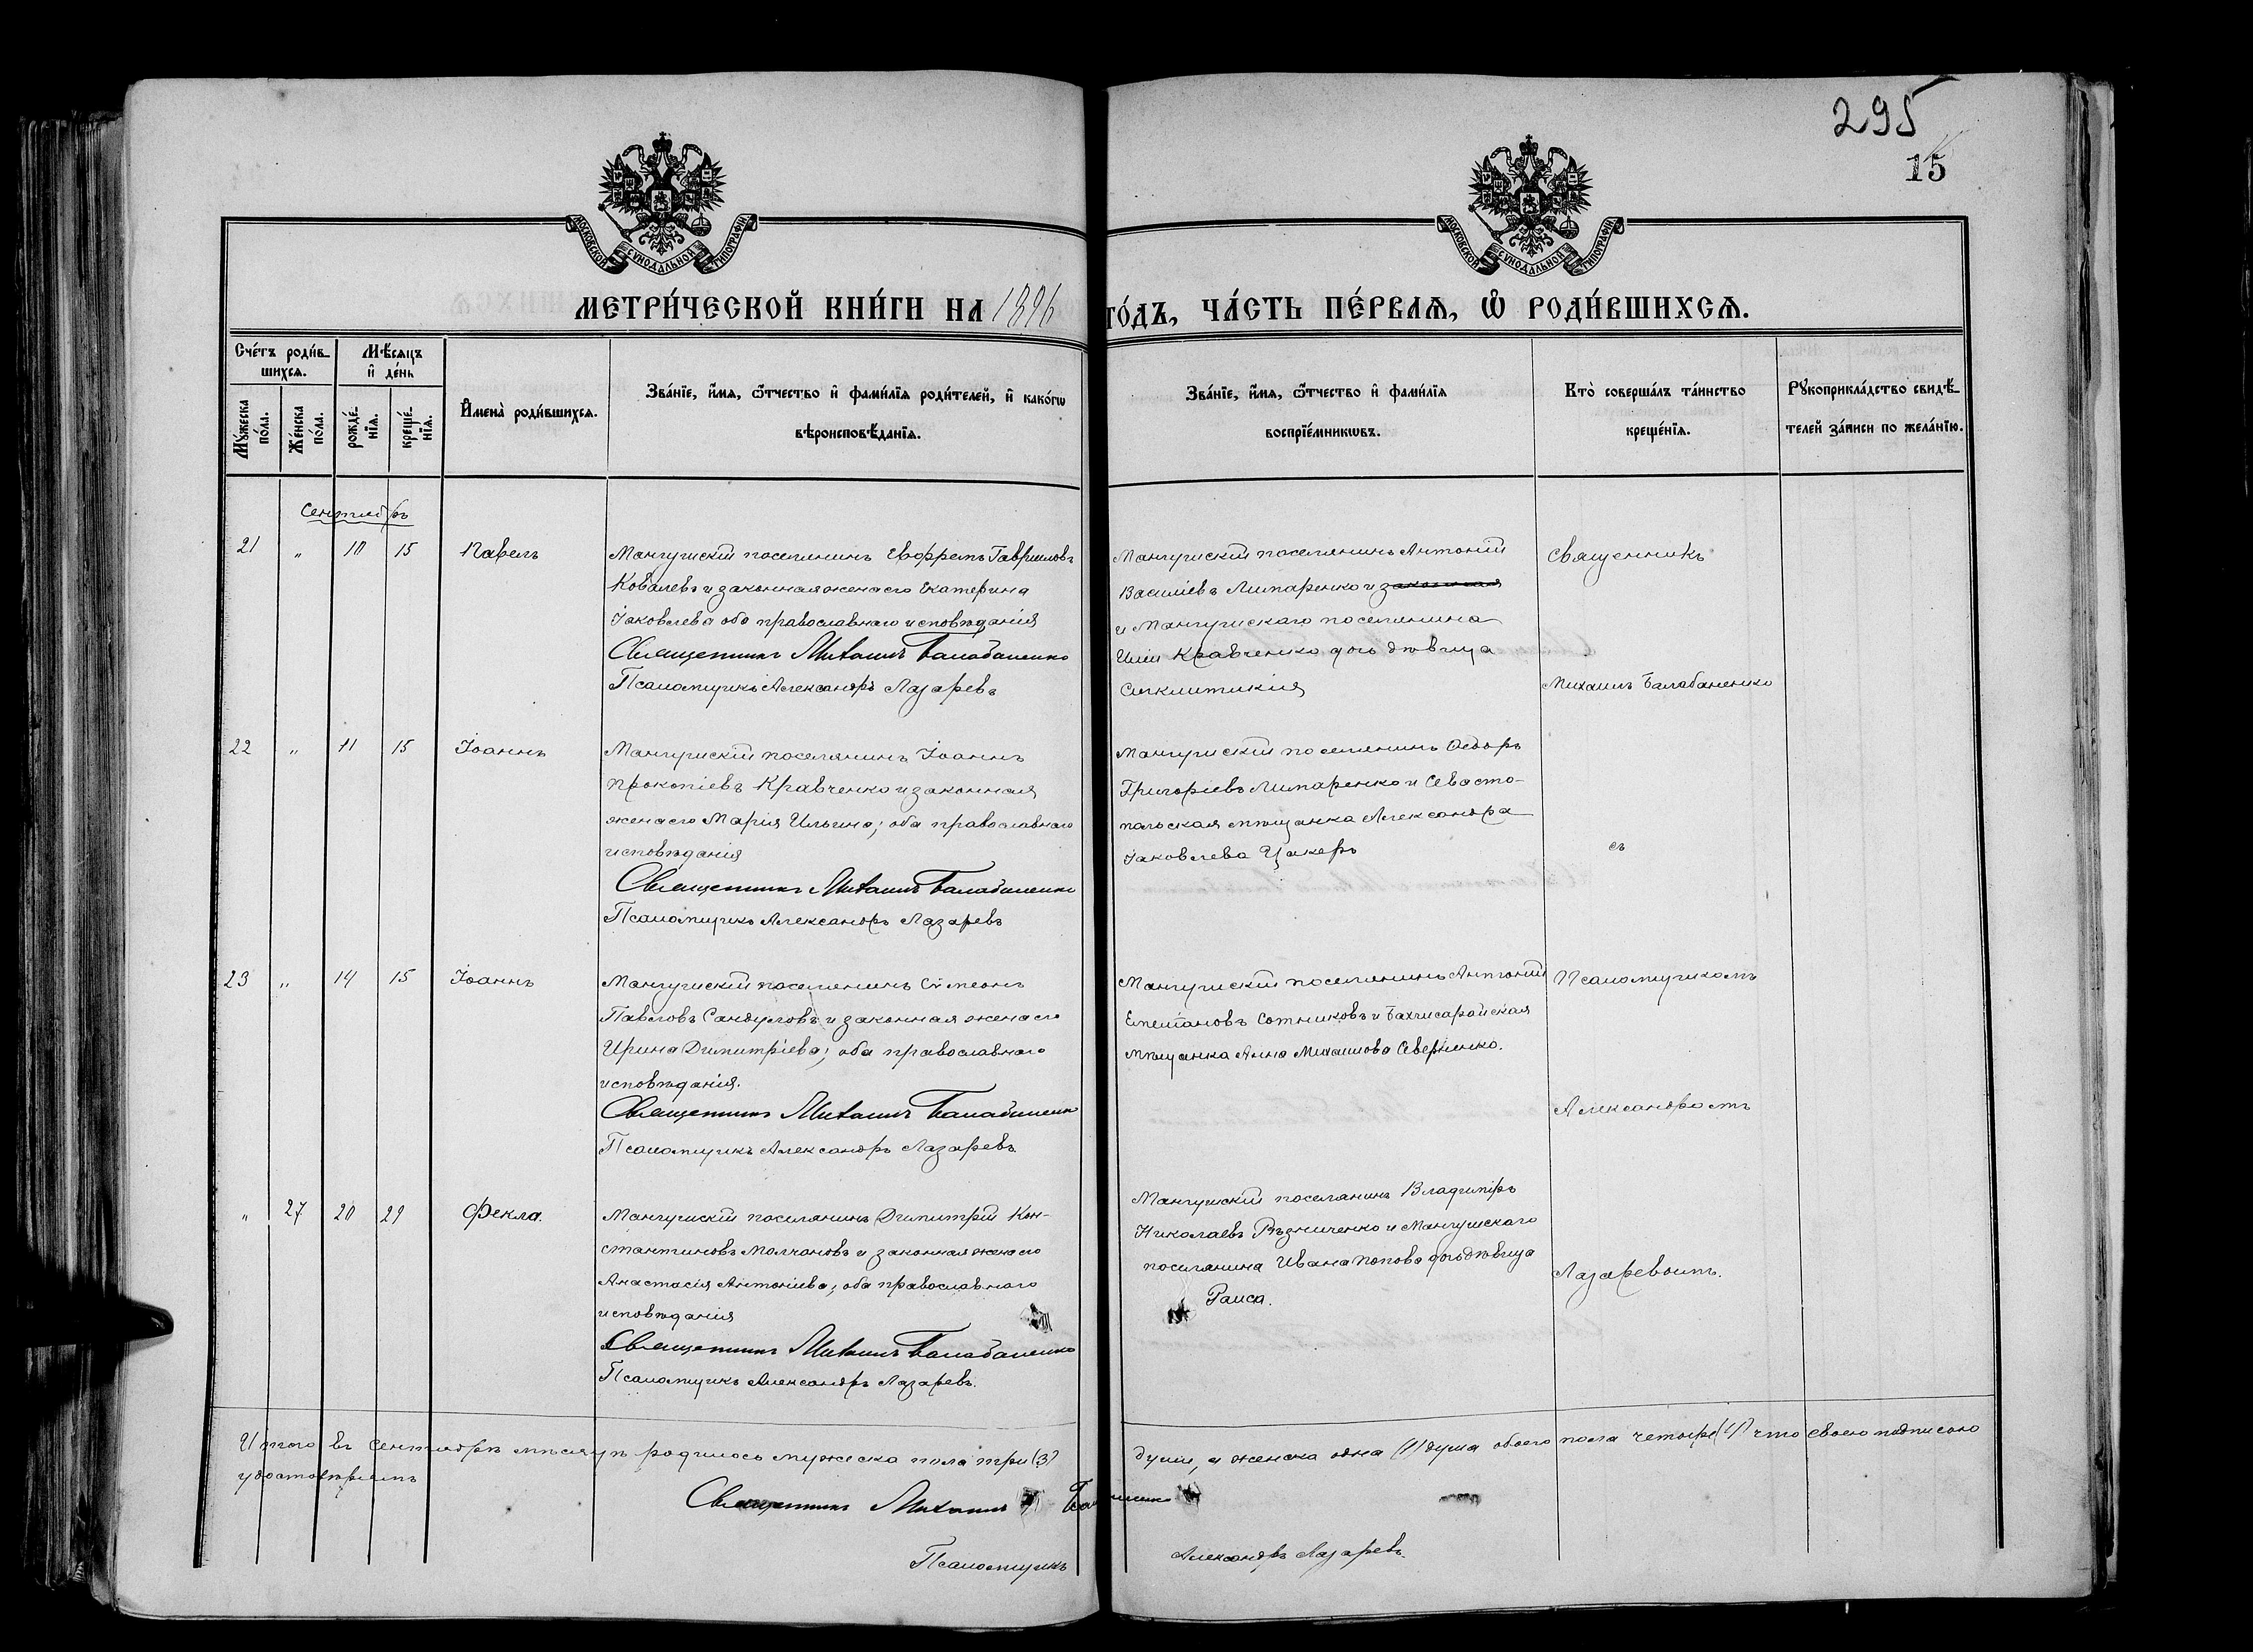 295
15
МОСКОВСКОЙ СѴНОДАЛЬНОЙ ТИПОГРАФІИ
МОСКОВСКОЙ СѴНОДАЛЬНОЙ ТИПОГРАФІИ
МЕТРИ́ЧЕСКОЙ КНИ́ГИ НА 1896 ГО́ДЪ, ЧА́СТЬ ПЕ́РВАѦ, Ѽ РОДИ́ВШИХСѦ.
Сче́тъ роди́в-
шихсѧ.
Мꙋжеска по́ла.
Же́нска по́ла.
Мѣ́сѧцъ
и҆ де́нь
рожде́-
нїѧ.
креще́-
нїѧ.
И҆мена̀ роди́вшихсѧ.
Зва́нїе, и҆́мѧ, ѻ҆́тчество и҆ фами́лїѧ роди́телей, и҆ како́гѡ
вѣроисповѣ́данїѧ.
Зва́нїе, и҆́мѧ, ѻ҆́тчество и҆ фами́лїѧ
воспрїе́мникѡвъ.
Кто̀ соверша́лъ та́инство
креще́нїѧ.
Рꙋкоприкла́дство свидѣ́-
телей за́писи по жела́нїю.
Сентябрь
21 " 10 15 Павелъ
Мангушскій поселянинъ Евфремъ Гавриловъ
Ковалевъ и законная жена его Екатерина
Іаковлева оба православнаго исповѣданія
Священникъ Михаилъ Балабаненко
Псаломщикъ Александръ Лазаревъ
Мангушскій поселянинъ Антоній
Василіевъ Литаренко и законная
и Мангушскаго поселянина
Иліи Кравченко дочь дѣвица
Синклитикія
Священникъ
Михаилъ Балабаненко
22 " 11 15 Іоаннъ
Мангушскій поселянинъ Іоаннъ
Прокопіевъ Кравченко и законная
жена его Марія Ильина; оба православнаго
исповѣданія
Священникъ Михаилъ Балабаненко
Псаломщикъ Александръ Лазаревъ
Мангушскій поселянинъ Ѳеодоръ
Григоріевъ Литаренко и Севасто-
польская мѣщанка Александра
Іаковлева Цакеръ
съ
23 " 14 15 Іоаннъ
Мангушскій поселянинъ Сѵмеонъ
Павловъ Сандуловъ и законная жена его
Ирина Димитріева; оба православнаго
исповѣданія.
Священникъ Михаилъ Балабаненко
Псаломщикъ Александръ Лазаревъ
Мангушскій поселянинъ Антоній
Сотниковъ и Бахчисарайская
мѣщанка Анна Михаилова Северненко.
Псаломщикомъ
Александромъ
" 27 20 29 Фекла.
Мангушскій поселянинъ Димитрій Кон-
стантиновъ Молчановъ и законная жена его
Анастасія Антоніева; оба православнаго
исповѣданія
Священникъ Михаилъ Балабаненко
Псаломщикъ Александръ Лазаревъ.
Мангушскій поселянинъ Владиміръ
Николаевъ Рѣзниченко и Мангушскаго
поселянина Ивана Попова дочь дѣвица
Раиса.
Лазаревымъ.
Итого въ Сентябрѣ мѣсяцѣ родилось мужеска пола три (3) души, а женска одна (1) душа обоего пола четыре (4) что своею подписью
удостовѣряемъ
Священникъ Михаилъ Балабаненко
Псаломщикъ Александръ Лазаревъ.